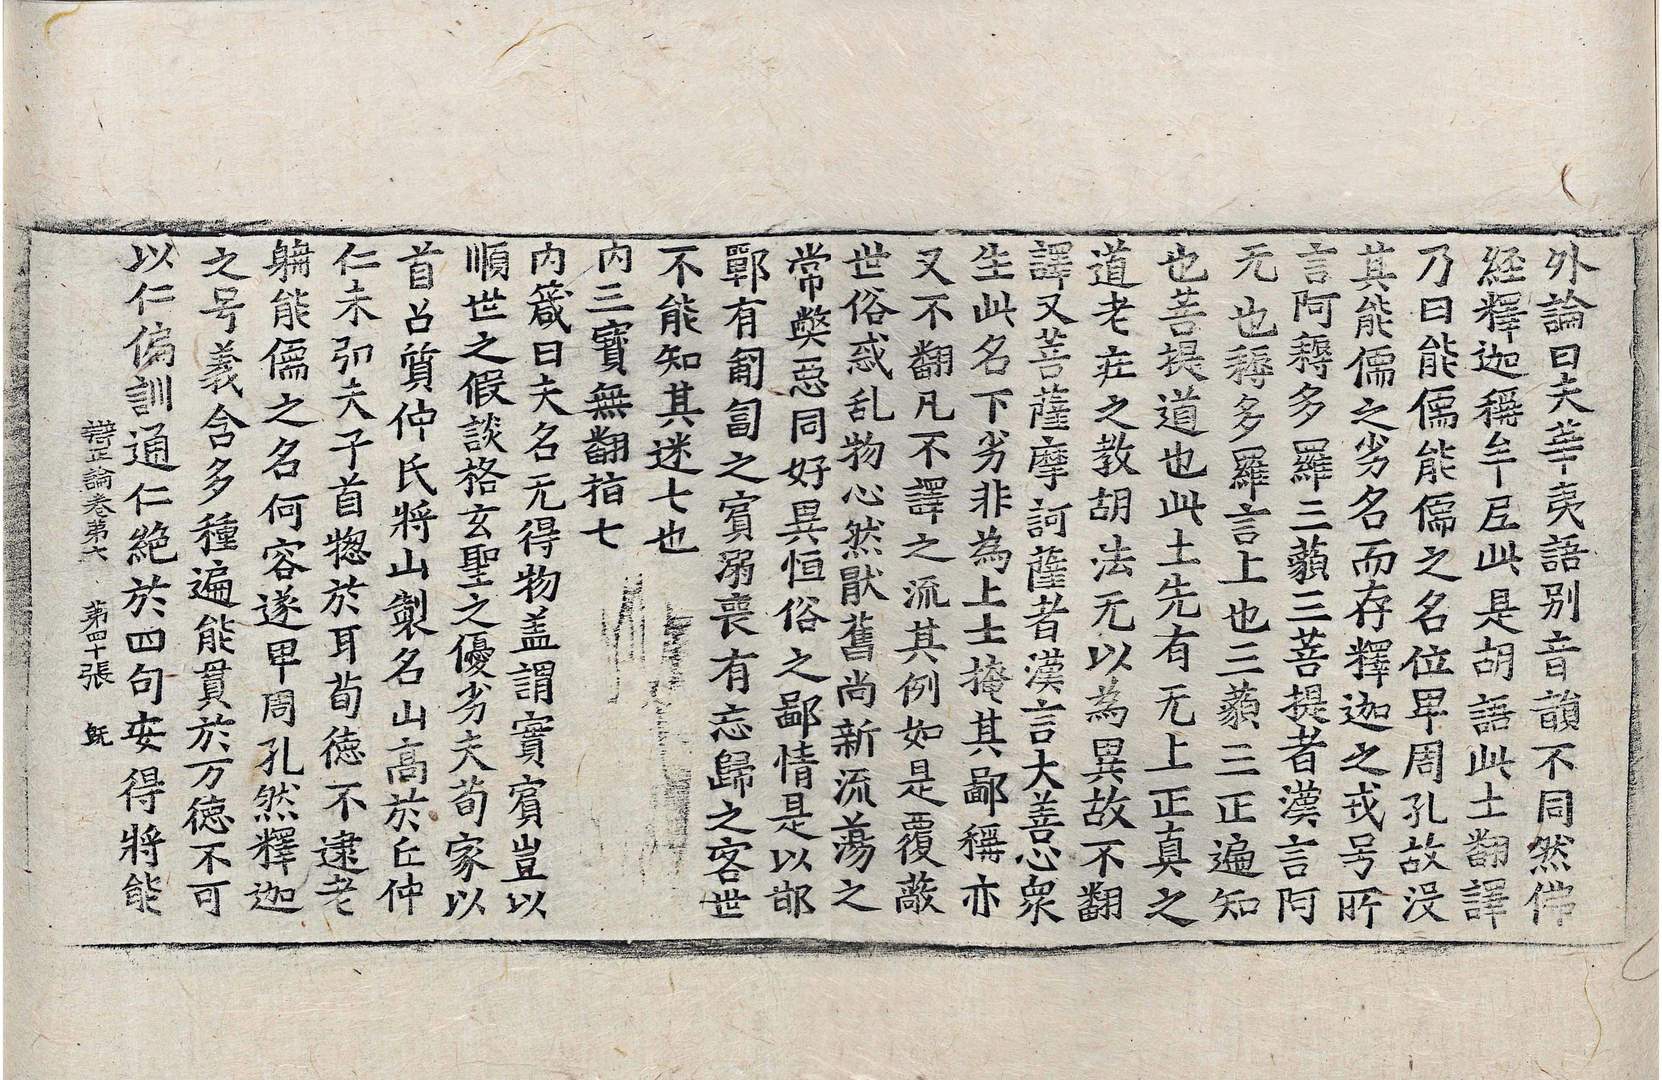 外論曰夫華夷語別音韻不同然佛
經釋迦稱牟尼此是胡語此土翻譯
乃曰能儒能儒之名位卑周孔故没
其能儒之劣名而存釋迦之戎号所
言阿耨多羅三藐三菩提者漢言阿
无也耨多羅言上也三藐三正遍知
也菩提道也此土先有无上正真之
道老庄之教胡法无以為異故不翻
譯又菩薩摩訶薩者漢言大善心衆
生此名下劣非為上士掩其鄙稱亦
又不翻凡不譯之流其例如是覆蔽
世俗惑乱物心然猒舊尚新流蕩之
常弊惡同好異恒俗之鄙情是以邯
鄲有匍匐之賓溺喪有忘歸之客世
不能知其迷七也
内三寶無翻指七
内箴曰夫名无得物盖謂實賓豈以
順世之假談格玄聖之優劣夫荀家以
首召質仲氏將山製名山高於丘仲
仁未弘夫子首惣於耳荀徳不逮老
躭能儒之名何容遂卑周孔然釋迦
之号義含多種遍能貫於万徳不可
以仁偏訓通仁絶於四句安得將能
辯正論卷第六 第四十張 既